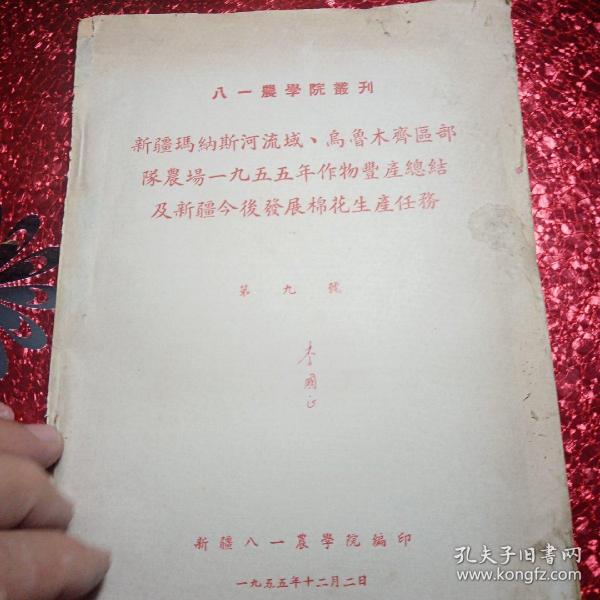 八一農學院叢刊
新疆瑪納斯河流域、烏魯木齊區部
隊農場一九五五年作物豐產總結
及新疆今後發展棉花生產任務
第九號
李國正
新疆八一農學院編印
一九五五年十二月二日
孔夫子旧书网
www.kongfz.com